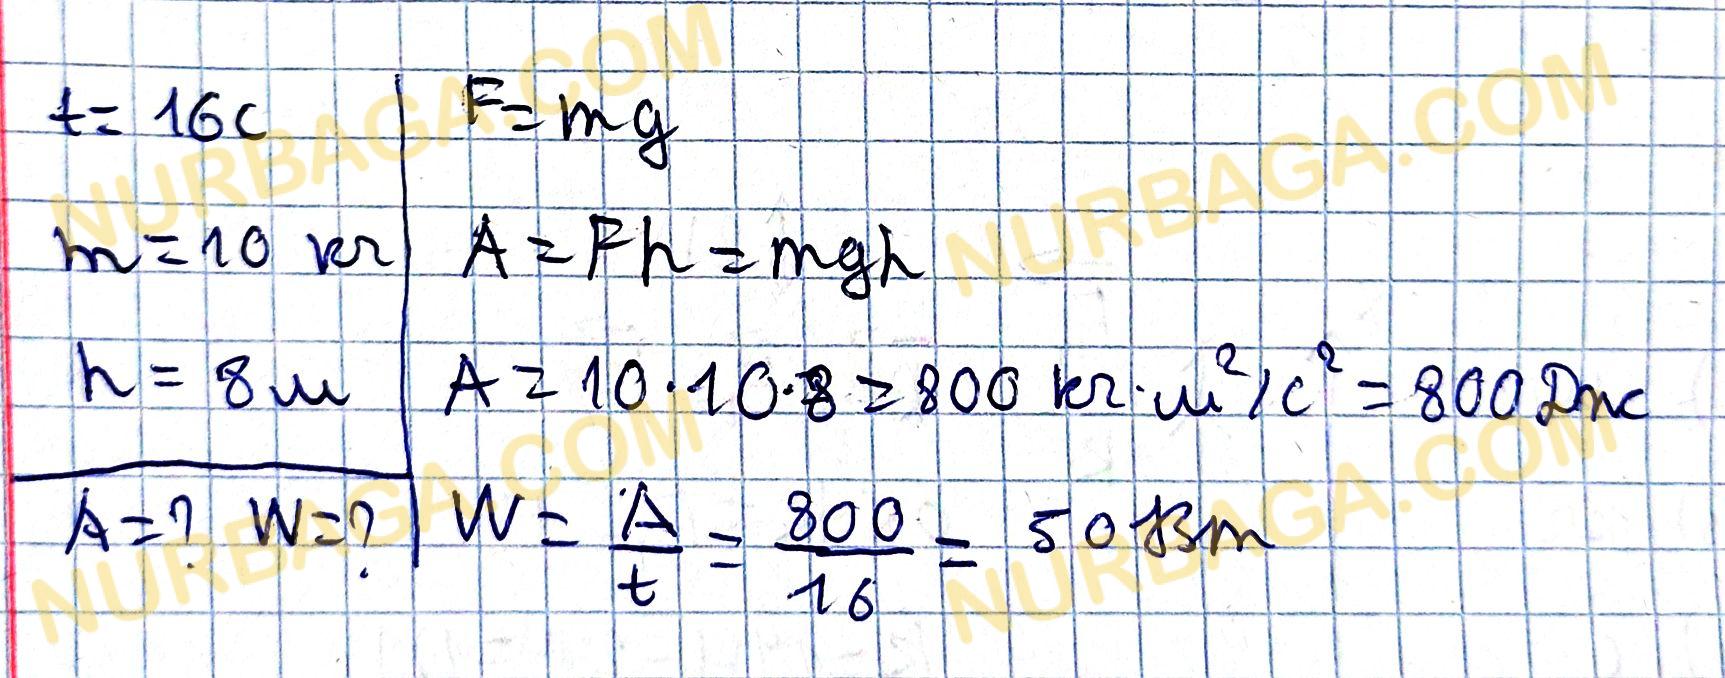 t= 16c
m=10 кг
h = 8 м
A=? W=?
F=mg
A = Fh = mgh
A = 10·10·8 = 800 кг·м²/с² = 800 Дж
W = A/t = 800/16 = 50 Вт
NURBAGA.COM
NURBAGA.COM
NURBAGA.COM
NURBAGA.COM